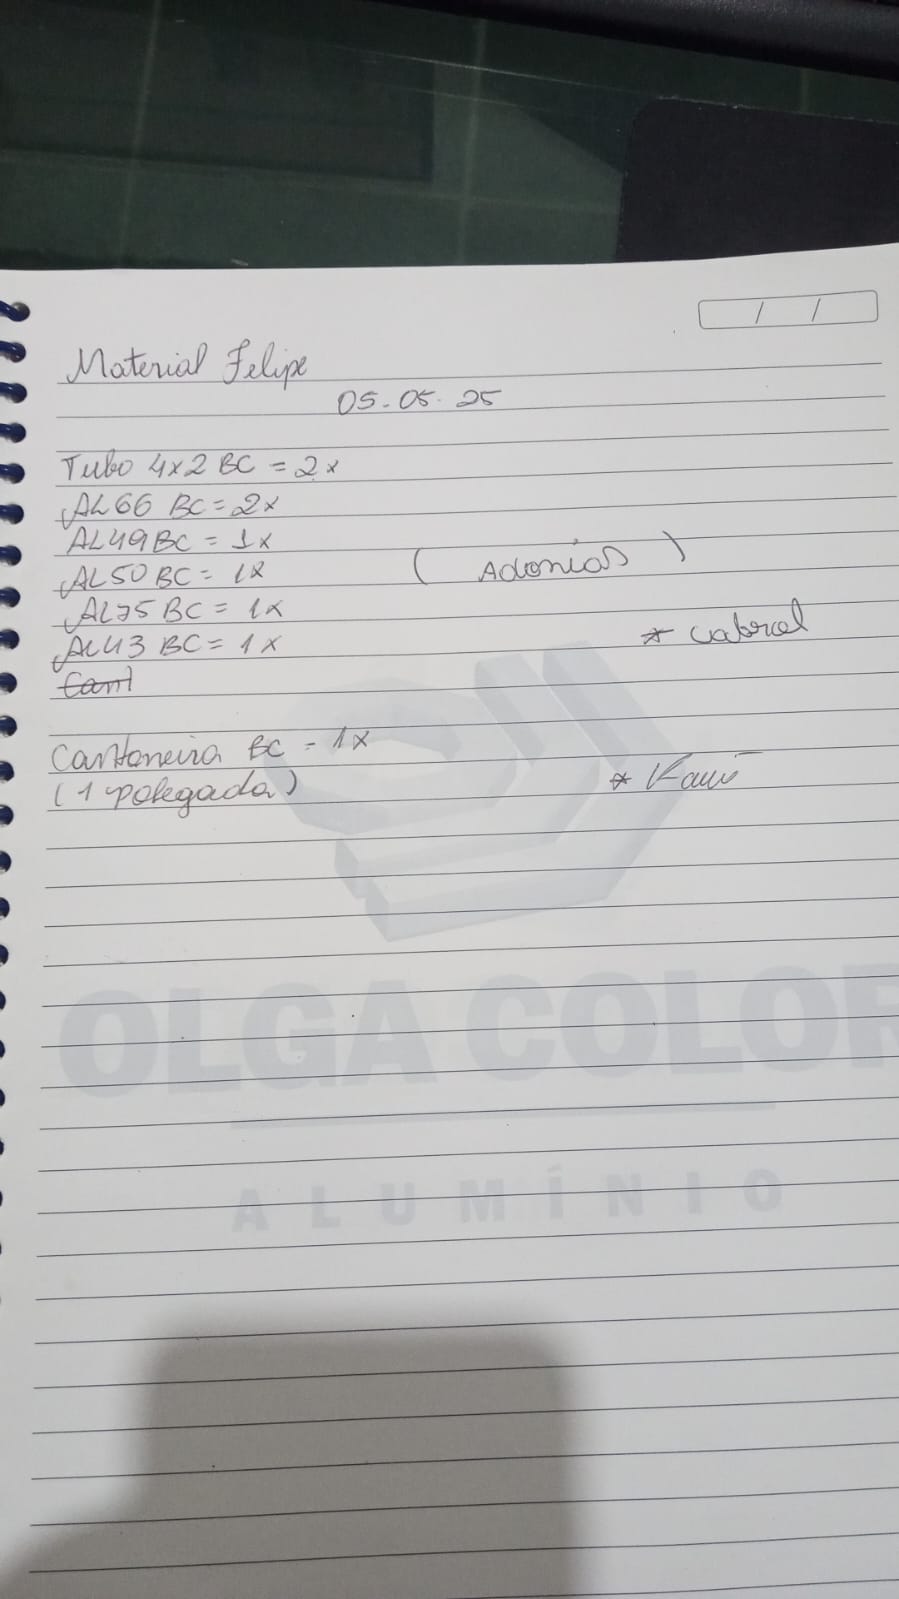 / /
Material Felipe
05.05.25
Tubo 4x2 BC = 2x
AL66 BC = 2x
AL49 BC = 1x
AL50 BC = 1x
(Adonias)
AL75 BC = 1x
AL43 BC = 1x
* Gabriel
Cant
Cantoneira BC = 1x
(1 polegada)
* Kauê
OLGA COLOR
ALUMÍNIO